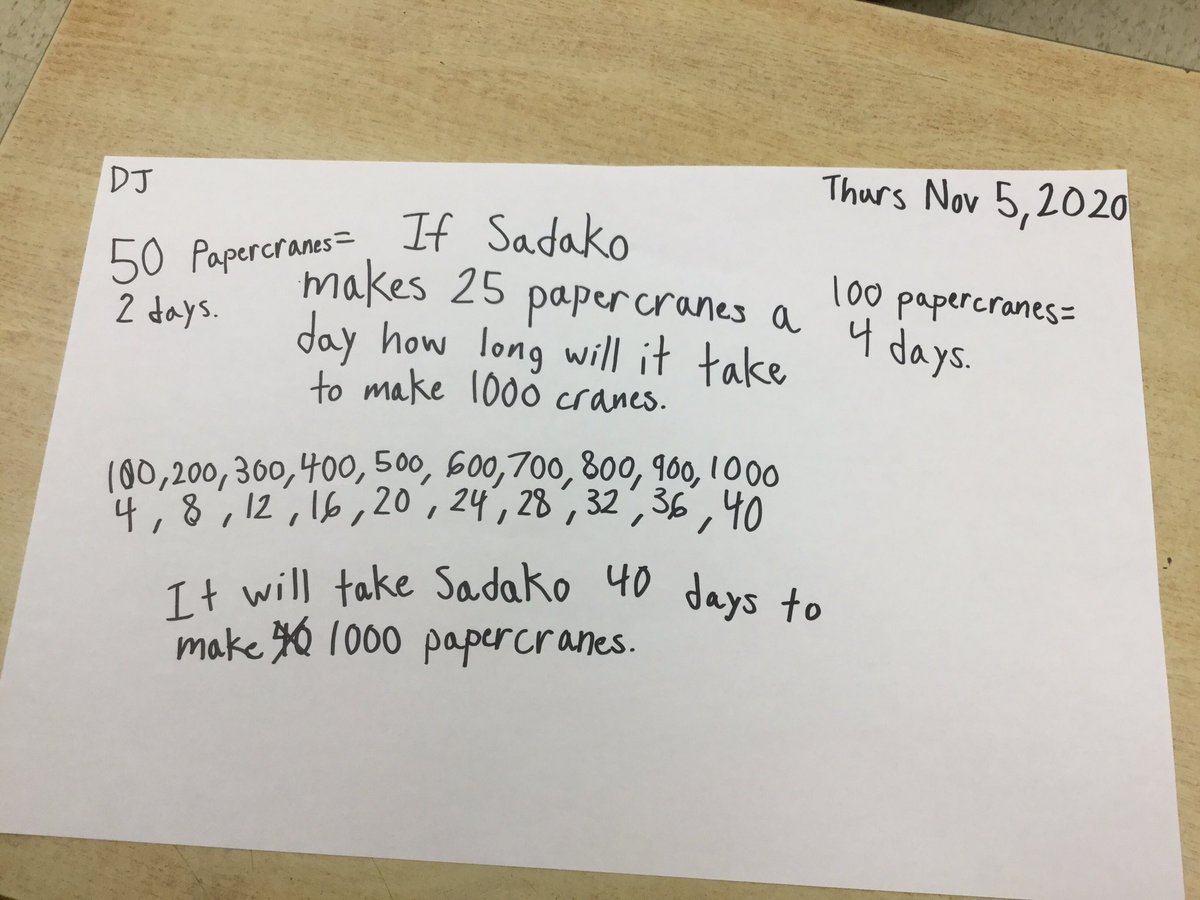 DJ
Thurs Nov 5, 2020
50 Papercranes=
2 days.
If Sadako
makes 25 papercranes a
day how long will it take
to make 1000 cranes.
100 papercranes=
4 days.
100, 200, 300, 400, 500, 600, 700, 800, 900, 1000
4, 8, 12, 16, 20, 24, 28, 32, 36, 40
It will take Sadako 40 days to
make 1000 papercranes.